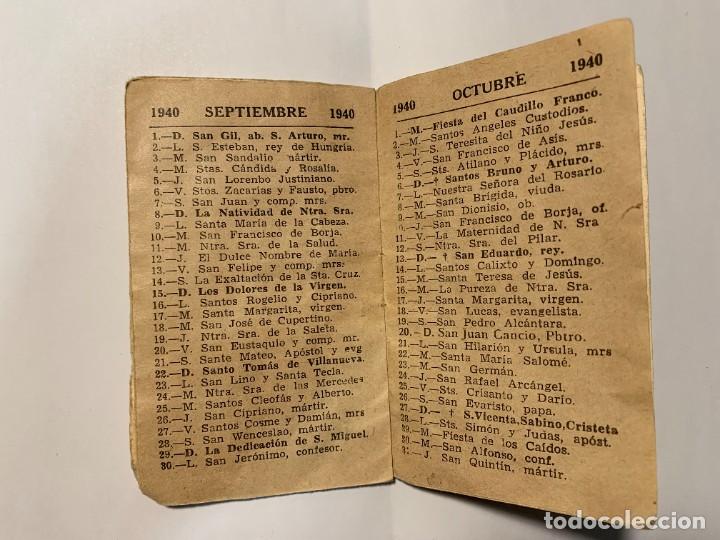 1940 SEPTIEMBRE 1940
1.—D. San Gil, ab. S. Arturo, mr.
2.—L. S. Esteban, rey de Hungría.
3.—M. San Sandalio mártir.
4.—M. Stas. Cándida y Rosalía.
5.—J. San Lorenbo Justiniano.
6.—V. Stos. Zacarías y Fausto, pbro.
7.—S. San Juan y comp. mrs.
8.—D. La Natividad de Ntra. Sra.
9.—L. Santa María de la Cabeza.
10.—M. San Francisco de Borja.
11.—M. Ntra. Sra. de la Salud.
12.—J. El Dulce Nombre de María.
13.—V. San Felipe y comp. mrs.
14.—S. La Exaltación de la Sta. Cruz.
15.—D. Los Dolores de la Virgen.
16.—L. Santos Rogelio y Cipriano.
17.—M. Santa Margarita, virgen.
18.—M. San José de Cupertino.
19.—J. Ntra. Sra. de la Saleta.
20.—V. San Eustaquio y comp. mr.
21.—S. Santo Mateo, Apóstol y evg
22.—D. Santo Tomás de Villanueva.
23.—L. San Lino y Santa Tecla.
24.—M. Ntra. Sra. de las Mercedes
25.—M. Santos Cleofás y Alberto.
26.—J. San Cipriano, mártir.
27.—V. Santos Cosme y Damián, mrs
28.—S. San Wenceslao, mártir.
29.—D. La Dedicación de S. Miguel.
30.—L. San Jerónimo, confesor.
1
1940 OCTUBRE 1940
1.—M.—Fiesta del Caudillo Franco.
2.—M.—Santos Angeles Custodios.
3.—J.—S. Teresita del Niño Jesús.
4.—V.—San Francisco de Asís.
5.—S.—Sts. Atilano y Plácido, mrs.
6.—D.—† Santos Bruno y Arturo.
7.—L.—Nuestra Señora del Rosario.
8.—M.—Santa Brígida, viuda.
9.—M.—San Dionisio, ob.
10.—J.—San Francisco de Borja, cf.
11.—V.—La Maternidad de N. Sra
12.—S.—Ntra. Sra. del Pilar.
13.—D.—† San Eduardo, rey.
14.—L.—Santos Calixto y Domingo.
15.—M.—Santa Teresa de Jesús.
16.—M.—La Pureza de Ntra. Sra.
17.—J.—Santa Margarita, virgen.
18.—V.—San Lucas, evangelista.
19.—S.—San Pedro Alcántara.
20.—D.—San Juan Cancio, Pbtro.
21.—L.—San Hilarión y Ursula, mrs
22.—M.—Santa María Salomé.
23.—M.—San Germán.
24.—J.—San Rafael Arcángel.
25.—V.—Sts. Crisanto y Darío.
26.—S.—San Evaristo, papa.
27.—D.— † S.Vicenta,Sabino,Cristeta
28.—L.—Sts. Simón y Judas, apóst.
29.—M.—Fiesta de los Caídos.
30.—M.—San Alfonso, conf.
31.—J. San Quintín, mártir.
todocoleccion.net